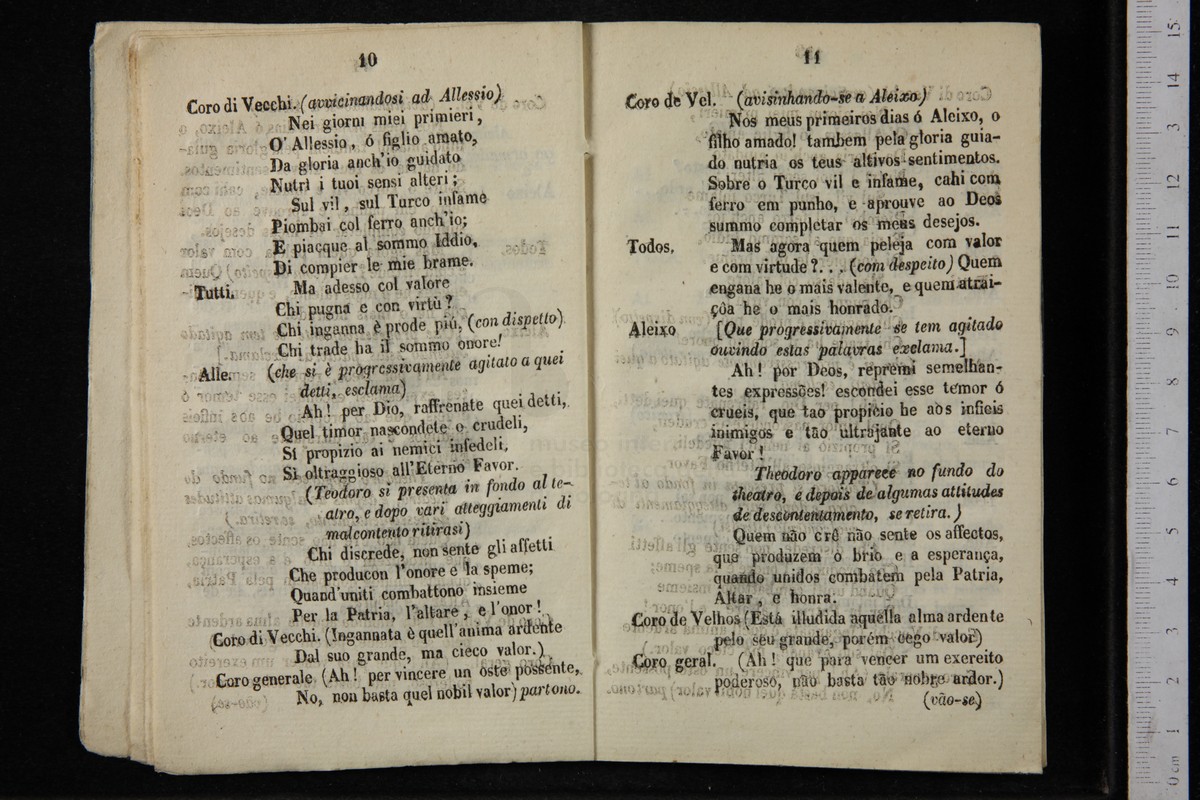 10
Coro di Vecchi. (avvicinandosi ad Allessio)
Nei giorni miei primieri,
O' Allessio, ó figlio amato,
Da gloria anch'io guidato
Nutrì i tuoi sensi alteri;
Sul vil, sul Turco infame
Piombai col ferro anch'io;
E piacque al sommo Iddio,
Di compier le mie brame.
Tutti. Ma adesso col valore
Chi pugna e con virtù?
Chi inganna è prode più, (con dispetto)
Chi trade ha il sommo onore!
Alle. (che si è progressivamente agitato a quei
detti, esclama)
Ah! per Dio, raffrenate quei detti,
Quel timor nascondete o crudeli,
Si propizio ai nemici infedeli,
Sì oltraggioso all'Eterno Favor.
(Teodoro si presenta in fondo al te-
atro, e dopo vari atteggiamenti di
malcontento ritirasi)
Chi discrede, non sente gli affetti
Che producon l'onore e la speme;
Quand'uniti combattono insieme
Per la Patria, l'altare, e l'onor!
Coro di Vecchi. (Ingannata è quell'anima ardente
Dal suo grande, ma cieco valor.)
Coro generale (Ah! per vincere un oste possente,
No, non basta quel nobil valor) partono.
11
Coro de Vel. (avisinhando-se a Aleixo.)
Nos meus primeiros dias ó Aleixo, o
filho amado! tambem pela gloria guia-
do nutria os teus altivos sentimentos.
Sobre o Turco vil e infame, cahi com
ferro em punho, e aprouve ao Deos
summo completar os meus desejos.
Todos. Mas agora quem peleja com valor
e com virtude?... (com despeito) Quem
engana he o mais valente, e quem atrai-
çôa he o mais honrado.
Aleixo [Que progressivamente se tem agitado
ouvindo estas palavras exclama.]
Ah! por Deos, repremi semelhan-
tes expressões! escondei esse temor ó
crueis, que tao propicio he aos infieis
inimigos e tão ultrajante ao eterno
Favor!
Theodoro apparece no fundo do
theatro, e depois de algumas attitudes
de descontentamento, se retira.)
Quem não crê não sente os affectos,
que produzem o brio e a esperança,
quando unidos combatem pela Patria,
Altar, e honra.
Coro de Velhos (Está illudida aquella alma ardente
pelo seu grande, porém cego valor)
Coro geral. (Ah! que para vencer um exercito
poderoso, não basta tão nobre ardor.)
(vão-se)